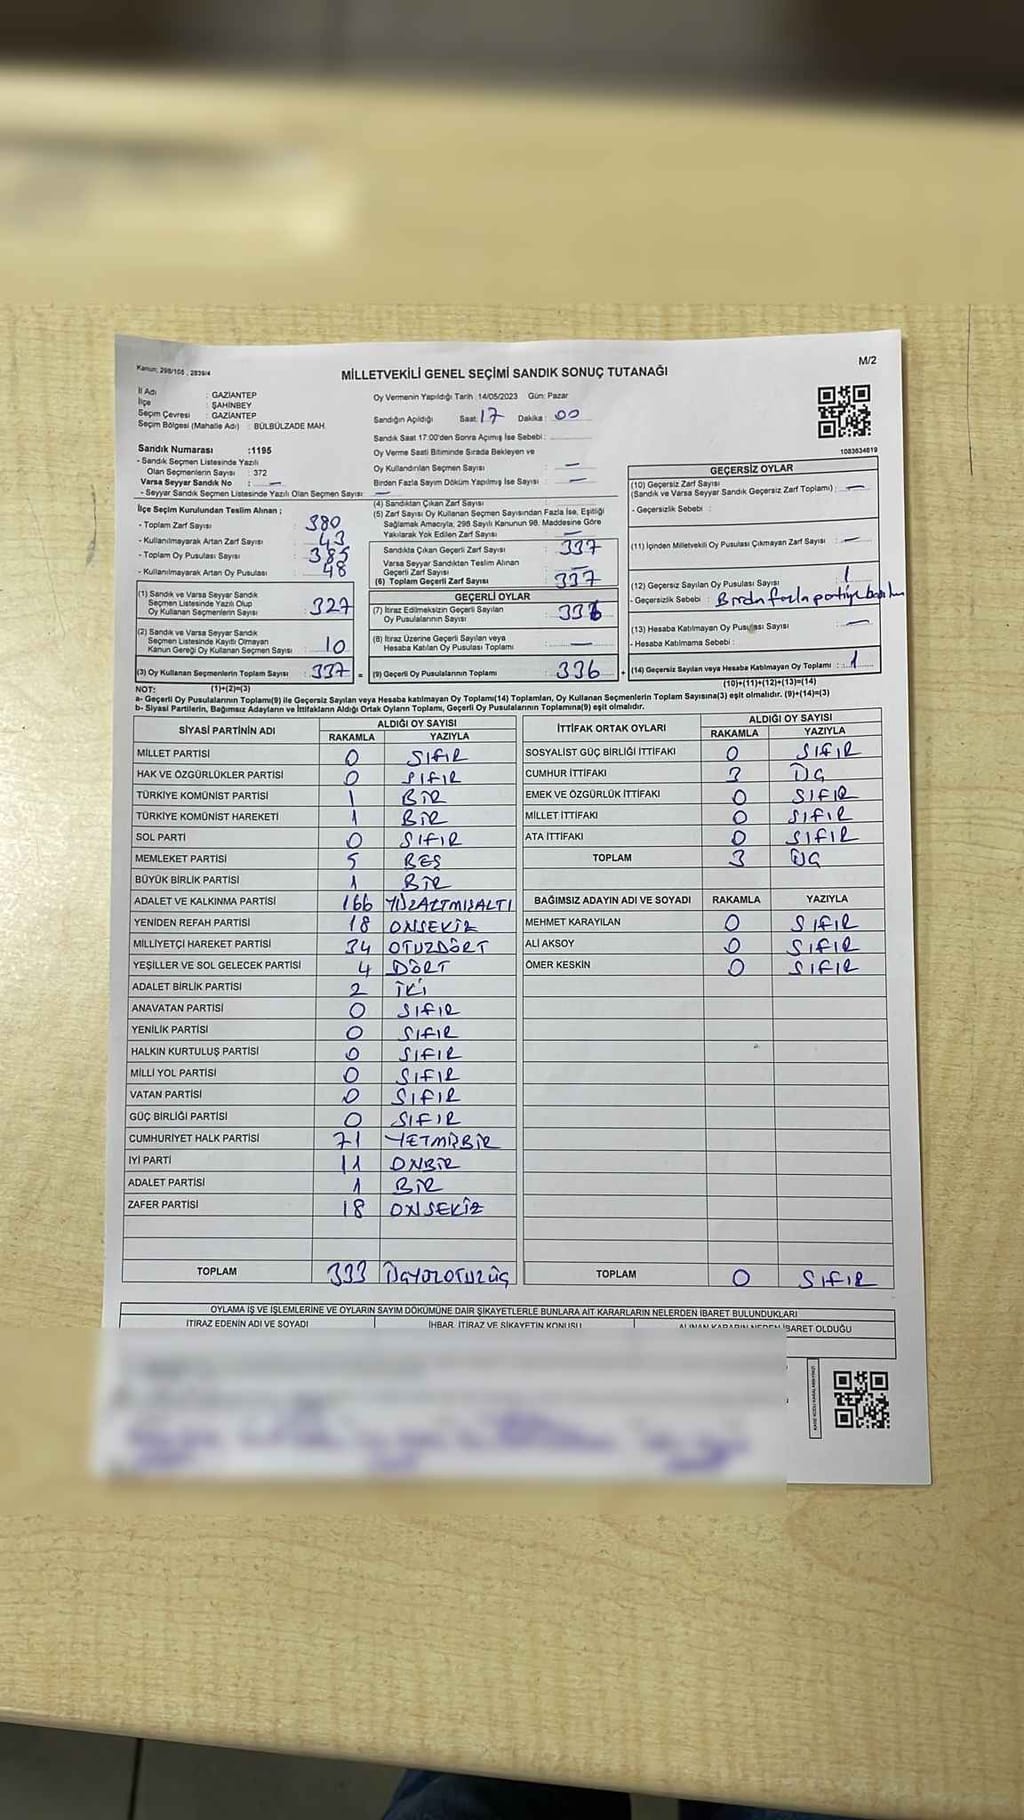 Kanun; 298/105 , 2839/4
M/2
MİLLETVEKİLİ GENEL SEÇİMİ SANDIK SONUÇ TUTANAĞI
İl Adı : GAZİANTEP
İlçe : ŞAHİNBEY
Seçim Çevresi : GAZİANTEP
Seçim Bölgesi (Mahalle Adı) : BÜLBÜLZADE MAH.
Sandık Numarası :1195
- Sandık Seçmen Listesinde Yazılı
Olan Seçmenlerin Sayısı : 372
Varsa Seyyar Sandık No : —
- Seyyar Sandık Seçmen Listesinde Yazılı Olan Seçmen Sayısı : —
Oy Vermenin Yapıldığı Tarih :14/05/2023 Gün: Pazar
Sandığın Açıldığı Saat: 17 Dakika : 00
Sandık Saat 17:00'den Sonra Açımış İse Sebebi :
Oy Verme Saati Bitiminde Sırada Bekleyen ve
Oy Kullandırılan Seçmen Sayısı : —
Birden Fazla Sayım Döküm Yapılmış İse Sayısı : —
1083634619
İlçe Seçim Kurulundan Teslim Alınan ;
- Toplam Zarf Sayısı : 380
- Kullanılmayarak Artan Zarf Sayısı : 43
- Toplam Oy Pusulası Sayısı : 385
- Kullanılmayarak Artan Oy Pusulası : 48
(1) Sandık ve Varsa Seyyar Sandık
Seçmen Listesinde Yazılı Olup
Oy Kullanan Seçmenlerin Sayısı : 327
(2) Sandık ve Varsa Seyyar Sandık
Seçmen Listesinde Kayıtlı Olmayan
Kanun Gereği Oy Kullanan Seçmen Sayısı : 10
(3) Oy Kullanan Seçmenlerin Toplam Sayısı : 337 =
(1)+(2)=(3)
(4) Sandıktan Çıkan Zarf Sayısı :
(5) Zarf Sayısı Oy Kullanan Seçmen Sayısından Fazla İse, Eşitliği
Sağlamak Amacıyla, 298 Sayılı Kanunun 98. Maddesine Göre
Yakılarak Yok Edilen Zarf Sayısı : —
Sandıkta Çıkan Geçerli Zarf Sayısı : 337
Varsa Seyyar Sandıktan Teslim Alınan
Geçerli Zarf Sayısı : —
(6) Toplam Geçerli Zarf Sayısı : 337
GEÇERLİ OYLAR
(7) İtiraz Edilmeksizin Geçerli Sayılan
Oy Pusulalarının Sayısı : 336
(8) İtiraz Üzerine Geçerli Sayılan veya
Hesaba Katılan Oy Pusulası Toplamı : —
(9) Geçerli Oy Pusulalarının Toplamı : 336 +
GEÇERSİZ OYLAR
(10) Geçersiz Zarf Sayısı
(Sandık ve Varsa Seyyar Sandık Geçersiz Zarf Toplamı) : —
- Geçersizlik Sebebi :
(11) İçinden Milletvekili Oy Pusulası Çıkmayan Zarf Sayısı : —
(12) Geçersiz Sayılan Oy Pusulası Sayısı : 1
- Geçersizlik Sebebi : Birden fazla partiye
(13) Hesaba Katılmayan Oy Pusulası Sayısı : —
- Hesaba Katılmama Sebebi :
(14) Geçersiz Sayılan veya Hesaba Katılmayan Oy Toplamı : 1
(10)+(11)+(12)+(13)=(14)
NOT:
a- Geçerli Oy Pusulalarının Toplamı(9) ile Geçersiz Sayılan veya Hesaba katılmayan Oy Toplamı(14) Toplamları, Oy Kullanan Seçmenlerin Toplam Sayısına(3) eşit olmalıdır. (9)+(14)=(3)
b- Siyasi Partilerin, Bağımsız Adayların ve İttifakların Aldığı Ortak Oyların Toplamı, Geçerli Oy Pusulalarının Toplamına(9) eşit olmalıdır.
SİYASİ PARTİNİN ADI ALDIĞI OY SAYISI
RAKAMLA YAZIYLA
MİLLET PARTİSİ 0 SIFIR
HAK VE ÖZGÜRLÜKLER PARTİSİ 0 SIFIR
TÜRKİYE KOMÜNİST PARTİSİ 1 BİR
TÜRKİYE KOMÜNİST HAREKETİ 1 BİR
SOL PARTİ 0 SIFIR
MEMLEKET PARTİSİ 5 BEŞ
BÜYÜK BİRLİK PARTİSİ 1 BİR
ADALET VE KALKINMA PARTİSİ 166 YÜZALTMIŞALTI
YENİDEN REFAH PARTİSİ 18 ONSEKİZ
MİLLİYETÇİ HAREKET PARTİSİ 34 OTUZDÖRT
YEŞİLLER VE SOL GELECEK PARTİSİ 4 DÖRT
ADALET BİRLİK PARTİSİ 2 İKİ
ANAVATAN PARTİSİ 0 SIFIR
YENİLİK PARTİSİ 0 SIFIR
HALKIN KURTULUŞ PARTİSİ 0 SIFIR
MİLLİ YOL PARTİSİ 0 SIFIR
VATAN PARTİSİ 0 SIFIR
GÜÇ BİRLİĞİ PARTİSİ 0 SIFIR
CUMHURİYET HALK PARTİSİ 71 YETMİŞBİR
İYİ PARTİ 11 ONBİR
ADALET PARTİSİ 1 BİR
ZAFER PARTİSİ 18 ONSEKİZ
TOPLAM 333 ÜÇYÜZOTUZÜÇ
İTTİFAK ORTAK OYLARI ALDIĞI OY SAYISI
RAKAMLA YAZIYLA
SOSYALİST GÜÇ BİRLİĞİ İTTİFAKI 0 SIFIR
CUMHUR İTTİFAKI 3 ÜÇ
EMEK VE ÖZGÜRLÜK İTTİFAKI 0 SIFIR
MİLLET İTTİFAKI 0 SIFIR
ATA İTTİFAKI 0 SIFIR
TOPLAM 3 ÜÇ
BAĞIMSIZ ADAYIN ADI VE SOYADI RAKAMLA YAZIYLA
MEHMET KARAYILAN 0 SIFIR
ALİ AKSOY 0 SIFIR
ÖMER KESKİN 0 SIFIR
TOPLAM 0 SIFIR
OYLAMA İŞ VE İŞLEMLERİNE VE OYLARIN SAYIM DÖKÜMÜNE DAİR ŞİKAYETLERLE BUNLARA AİT KARARLARIN NELERDEN İBARET BULUNDUKLARI
İTİRAZ EDENİN ADI VE SOYADI İHBAR, İTİRAZ VE ŞİKAYETİN KONUSU ALINAN KARARIN NEDEN İBARET OLDUĞU